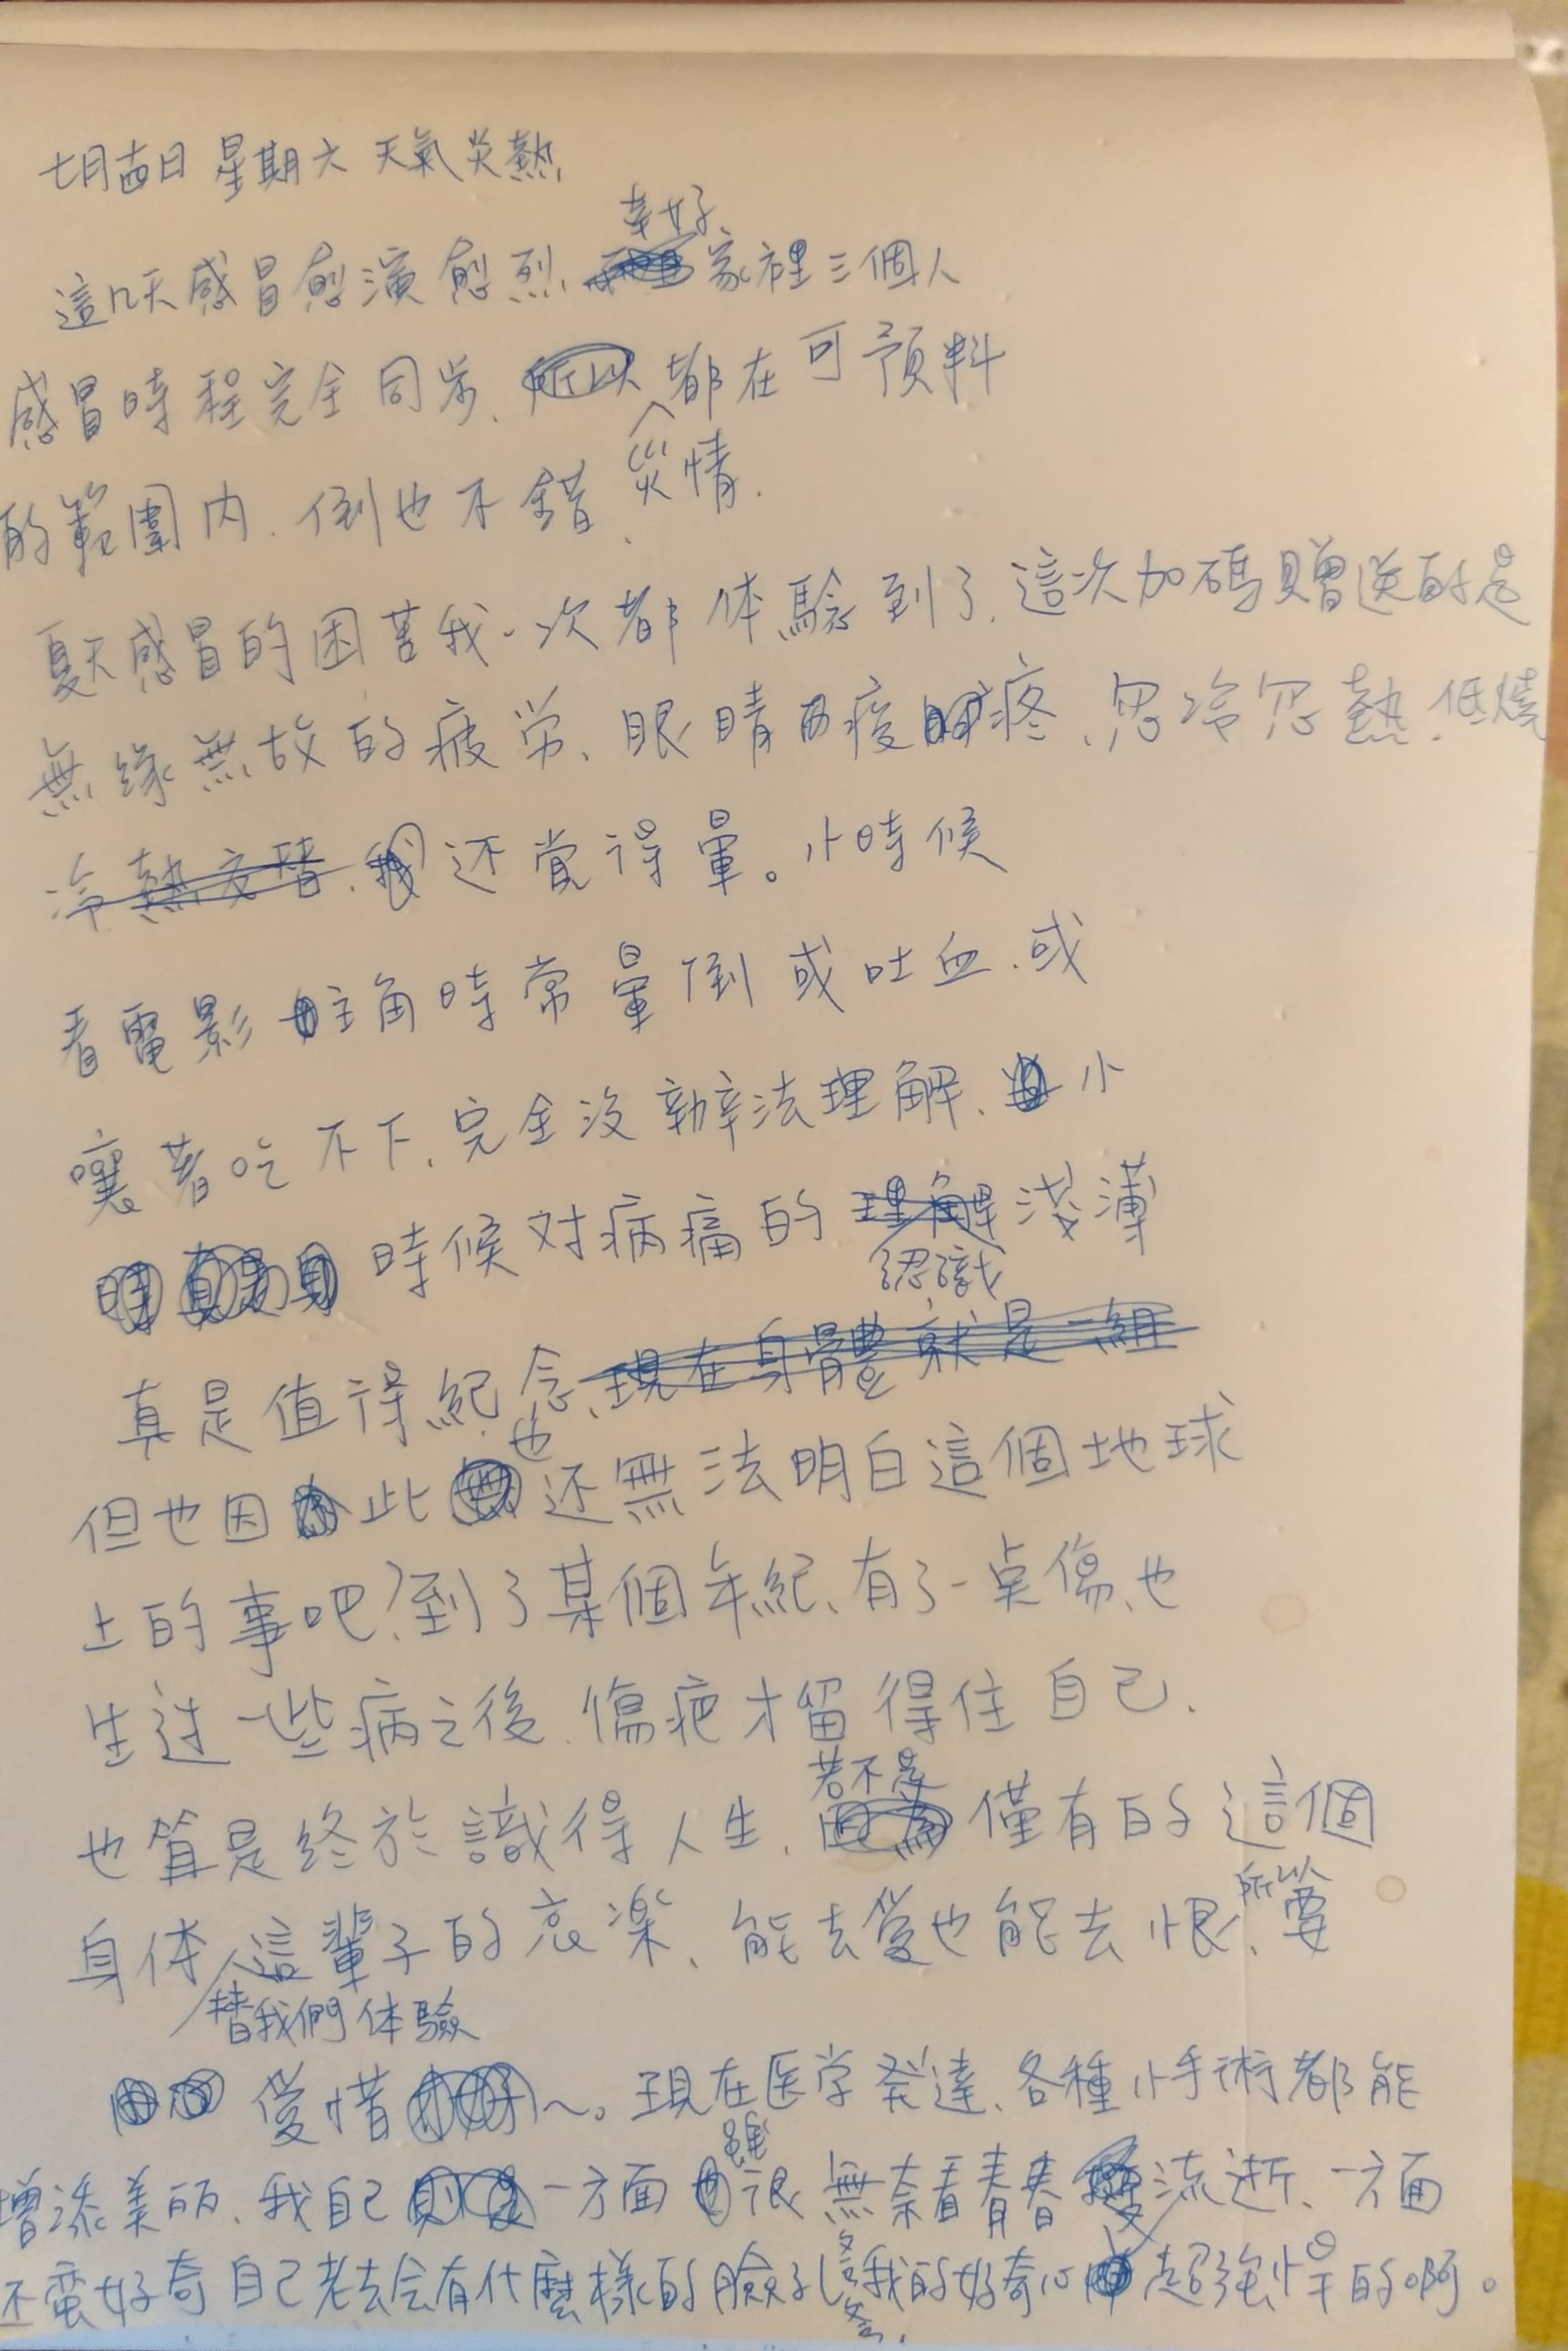 七月十四日 星期六 天氣炎熱
這几天感冒愈演愈烈、幸好、家裡三個人
感冒時程完全同步、所以災情都在可預料
的範圍內.倒也不錯.
夏天感冒的困苦我一次都体驗到了.這次加碼贈送的是
無緣無故的疲労、眼睛痠疼、忽冷忽熱.低燒
冷熱交替、我还覚得暈。小時候
看電影主角時常暈倒或吐血.或
嚷著吃不下.完全沒辦法理解、小
時候对病痛的理解認識淺薄
真是值得紀念、現在身體就是一組
但也因此也还無法明白這個地球
上的事吧?到了某個年紀、有了一点傷、也
生过一些病之後.傷疤才留得住自己.
也算是終於識得人生.若不是僅有的這個
身体替我們体驗這輩子的哀楽、能去愛也能去恨、所以要
愛惜~。現在医学発達、各種小手術都能
增添美丽、我自己一方面雖很無奈看青春流逝、一方面
还蛮好奇自己老去会有什麼樣的臉孔 我的好奇心超強悍的啊。